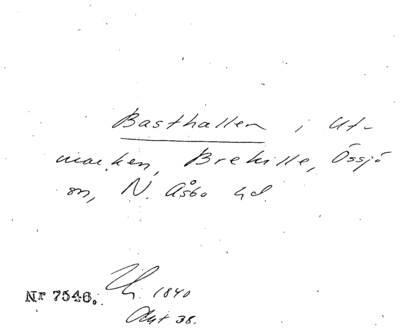 Basthallen i Ut-
marken, Brehille, Össjö
sn, N. Åsbo hd.
Nr 7546. 1840